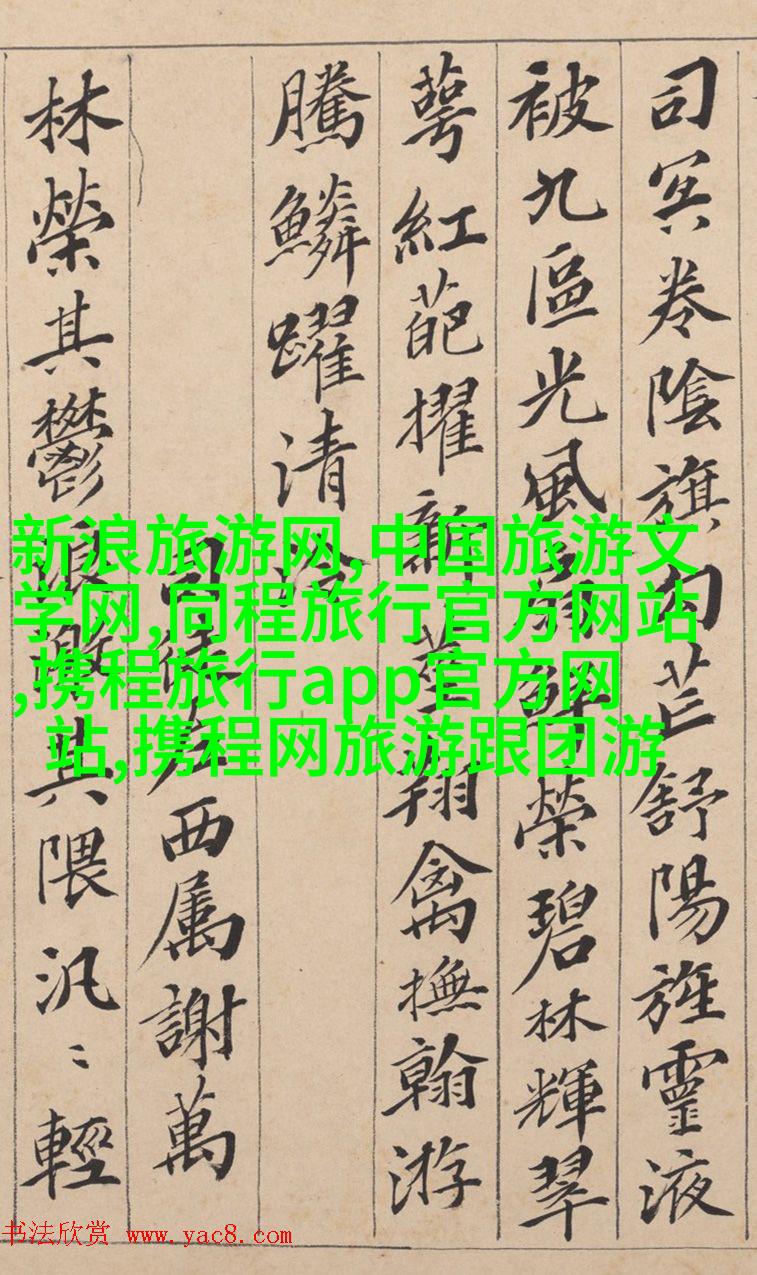 司冥卷陰旗句芒舒陽旌靈液
被九區光風扇鮮榮碧林輝翠
萼紅葩擢新莖翔禽撫翰游
騰鱗躍清泠
司徒左西属謝萬
林榮其鬱浪激其隈汎〻輕
新浪旅游网,中国旅游文
学网,同程旅行官方网站
,携程旅行app官方网
站,携程网旅游跟团游
书法欣赏 www.yac8.com